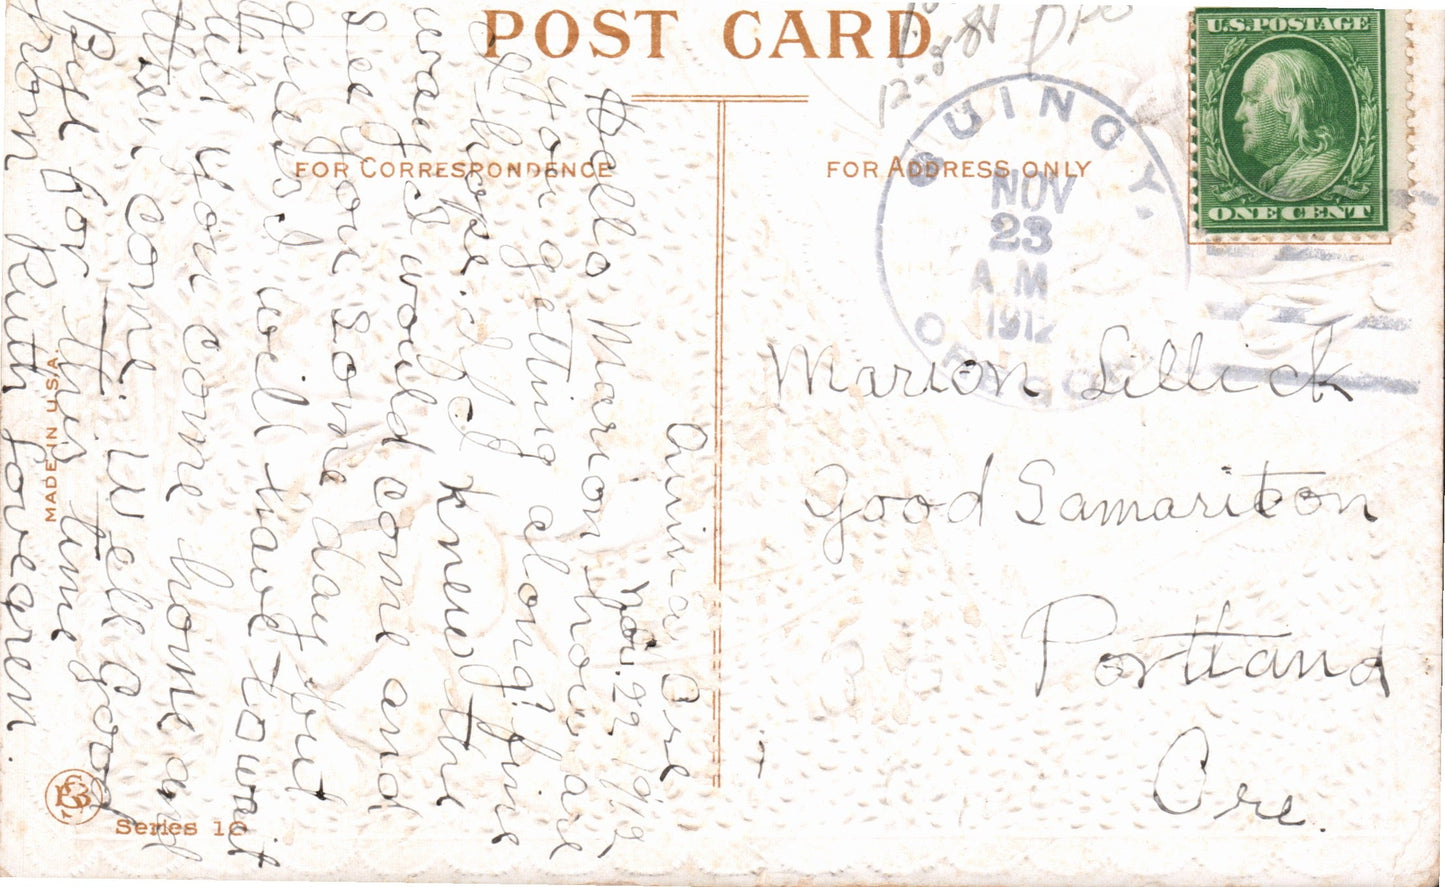 POST CARD
FOR CORRESPONDENCE
FOR ADDRESS ONLY
U.S. POSTAGE
ONE CENT
QUINCY.
NOV
23
A M
1912
OREGON
Marion Lillick
Good Samariton
Portland
Ore.
Ore
Nov. 22 1912
Hello Marion how are
you getting along? fine
I hope. If I knew the
way I would come and
see you some day but
guess I will have to wait
till you come home and
then come. Well Good
Bye for this time
from Ruth Lovegren.
MADE IN U.S.A.
Series 16
12-8-84